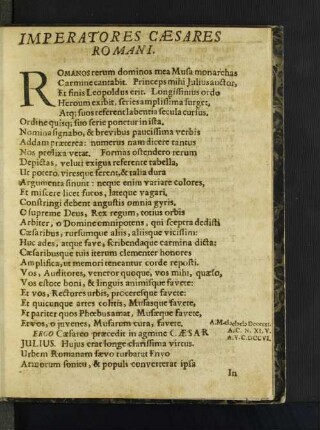 IMPERATORES CÆSARES
ROMANI.
ROMANOS rerum dominos mea Musa monarchas
Carmine cantabit. Princeps mihi Julius auctor,
Et finis Leopoldus erit. Longissimus ordo
Heroum exibit, series amplissima surget,
Atq; suos referent labentia secula curius.
Ordine quisq; suo serie ponetur in ista,
Nomina signabo, & brevibus paucissima verbis
Addam præterea: numerus nam dicere tantus
Nos prolixa vetat. Formas ostendero rerum
Depictas, veluti exigua referente tabella,
Ut potero. viresque ferent, & talia dura
Argumenta sinunt: neque enim variare colores,
Et miscere licet fucos, lateque vagari,
Constringi debent angustis omnia gyris,
O supreme Deus, Rex regum, totius orbis
Arbiter, o Domine omnipotens, qui sceptra dedisti
Cæsaribus, rursumque aliis, aliisque vicissim:
Huc ades, atque fave, scribendaque carmina dicta;
Cæsaribusque tuis iterum clementer honores
Amplifica, ut memori teneantur corde reposti.
Vos, Auditores, veneror quoque, vos mihi, quæso,
Vos estote boni, & linguis animisque favete:
Et vos, Rectores urbis, proceresque favete:
Et quicunque artes colitis, Musasque favete,
Et pariter quos Phœbus amat, Musæque favete,
Et vos, o juvenes, Musarum cura, favete,
ERGO Cæsareo præcedit in agmine CÆSAR
JULIUS. Hujus erat longe clarissima virtus.
Urbem Romanam sævo turbarat Enyo
Armorum sonitu, & populi converterat ipsa
In
A.C. N. XLV.
A.V.C. DCCVI.